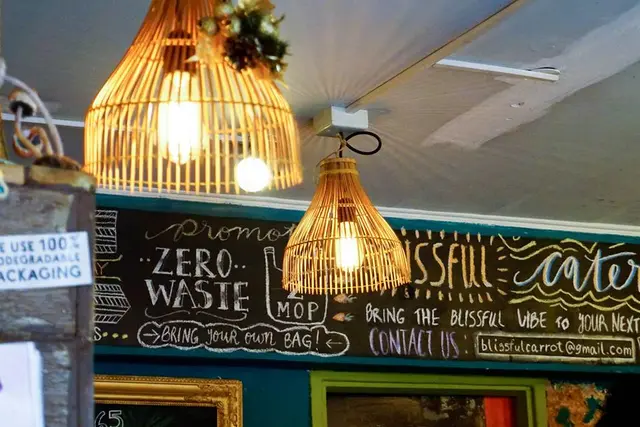 E USE 100%
ODEGRADABLE
PACKAGING
promot
ZERO
WASTE
MOP
BRING YOUR OWN BAG!
ISSFULL
cater
BRING THE BLISSFUL VIBE TO YOUR NEXT
CONTACT US:
blissfulcarrot@gmail.com
65